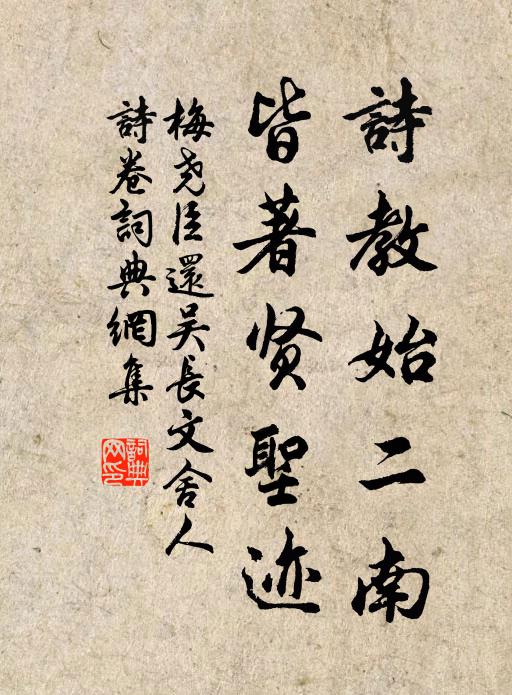 詩教始二南
皆著贤聖迹
梅尧臣還吴長文舍人
詩卷詞典網集
詞典
网印